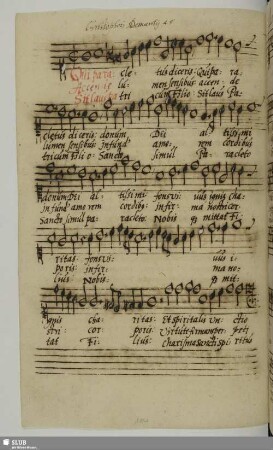 Christophori Demantii à 5
Qui para- cle- tus diceris: Qui para-
Accen de lu- men sensibus accen- de
Sit laus Pa tri cum Filio Sit laus Pa-
cletus diceris: donum Dei al- tissimi
lumen sensibus Infund amo- rem cordibus
tri cum Fili o: Sancto simul Pa- racleto
donum Dei al- tissimi fons vi- vus ignis cha
Infund amo rem cordib9 infir- ma nostri cor
Sancto simul pa- racleto: Nobis mittat Fi
ritas: fons vi- vus i-
poris: infir- ma no-
lius: Nobis:
gnis cha- ritas: Et spiritalis Un- ctio
stri cor- poris Virtute firmans per- peti
tat Fi- lius: charisma Sancti spi- ritus
SLUB